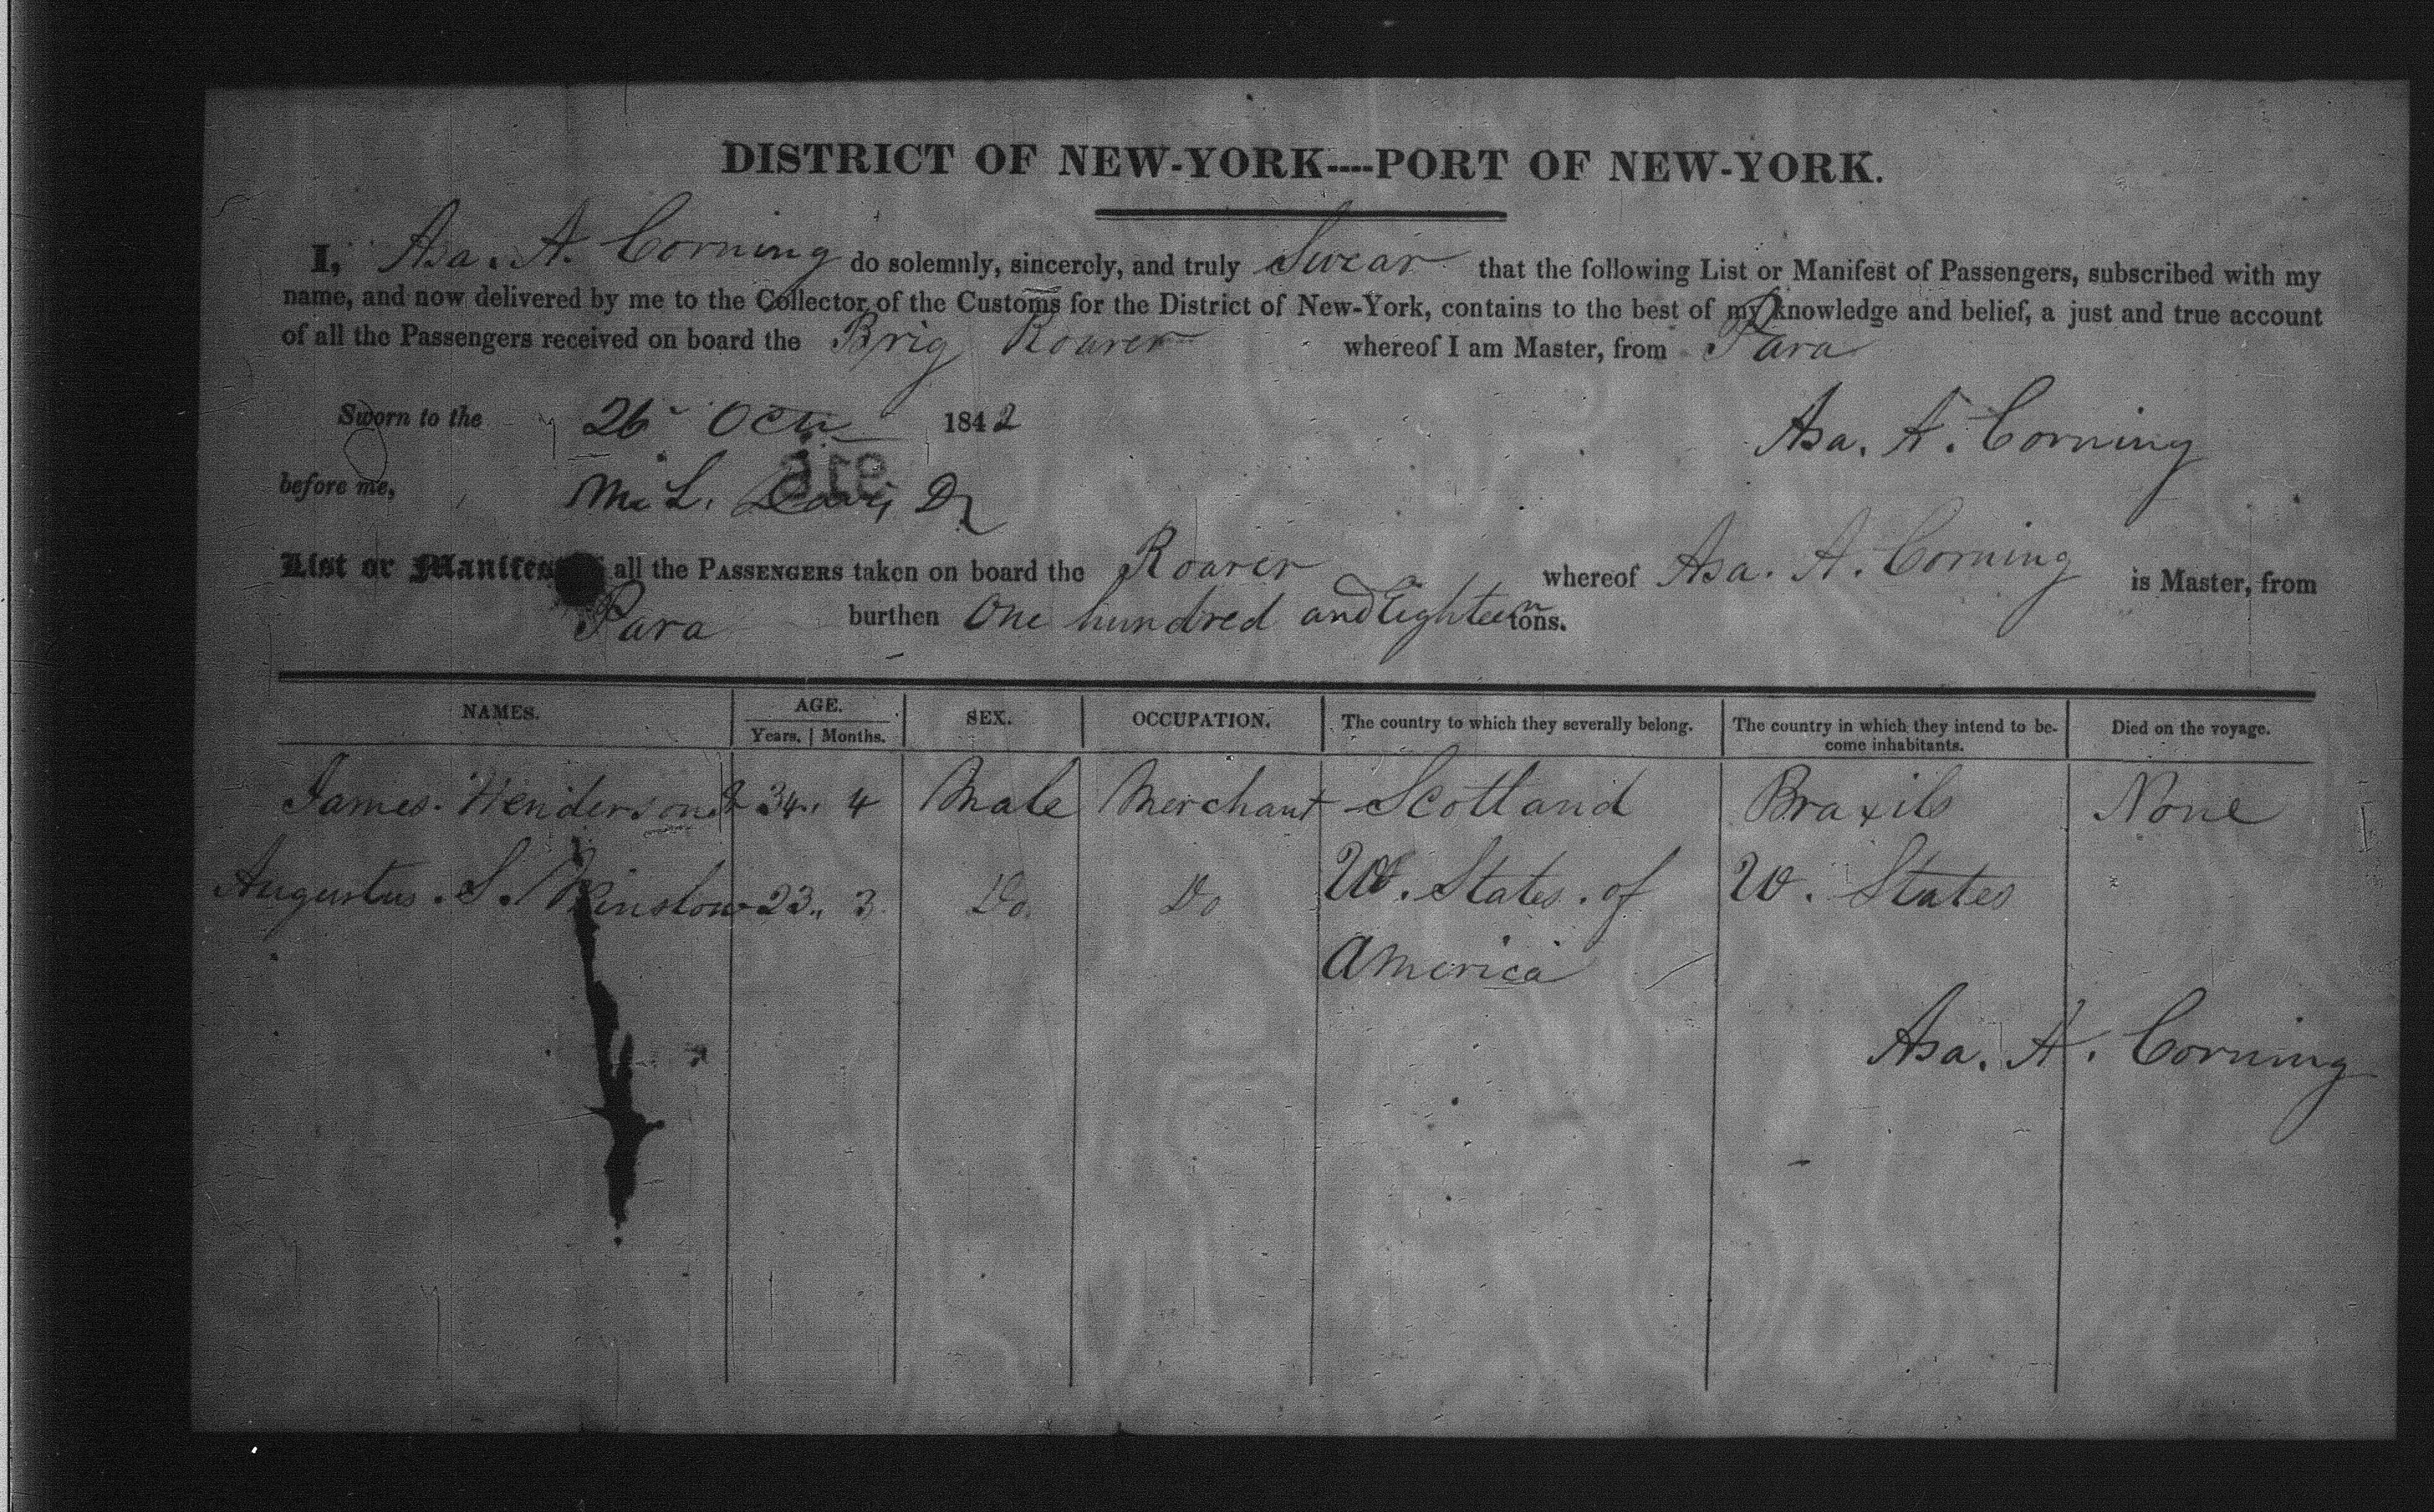 DISTRICT OF NEW-YORK----PORT OF NEW-YORK.
I, Asa. A. Corning do solemnly, sincerely, and truly Swear that the following List or Manifest of Passengers, subscribed with my
name, and now delivered by me to the Collector of the Customs for the District of New-York, contains to the best of my knowledge and belief, a just and true account
of all the Passengers received on board the Brig Roarer whereof I am Master, from Para
Sworn to the 26 Oct 1842
Asa. A. Corning
before me, M. L.
List or Manifest all the PASSENGERS taken on board the Roarer whereof Asa. A. Corning is Master, from
Para burthen One hundred and Eighteen tons.
NAMES. AGE. SEX. OCCUPATION. The country to which they severally belong. The country in which they intend to be-
Years. Months. come inhabitants. Died on the voyage.
James. Henderson 34,, 4 Male Merchant Scotland Brazils None
Augustus. S. Winslow 23,, 3 Do Do U. States. of U. States
America
Asa. A. Corning